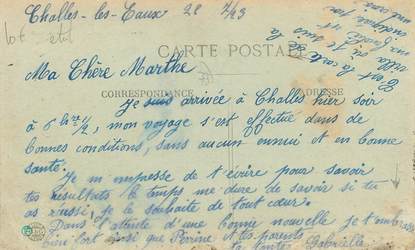 Challes-les-Eaux 22 7/23
CARTE POSTALE
CORRESPONDANCE
Ma Chère Marthe
Je suis arrivée à Challes hier soir
à 6 h 1/2, mon voyage s'est effectué dans de
bonnes conditions, sans aucun ennui et en bonne
santé.
Je m'empresse de t'écrire pour savoir
tes résultats le temps me dure de savoir si tu
as réussi je le souhaite de tout cœur.
Dans l'attente d'une bonne nouvelle je t'embrasse
bien fort ainsi que Perrine et tes parents
Gabrielle
C'est la carte de la
villa où je suis